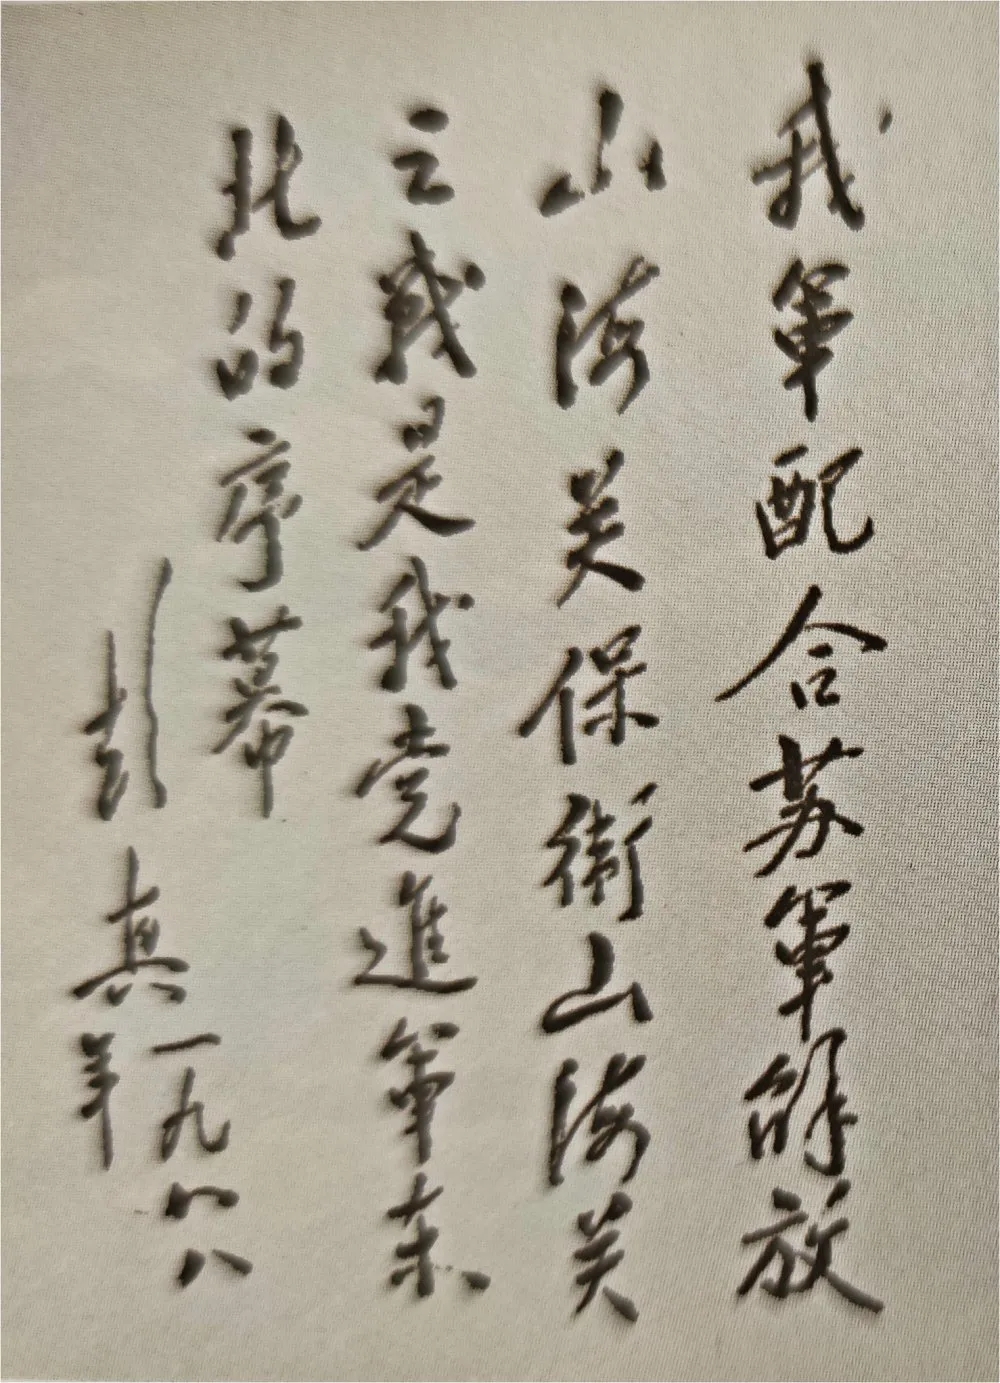 我軍配合苏軍解放
山海关保衛山海关
之戰是我党進軍东
北的序幕
彭真
一九八八
年